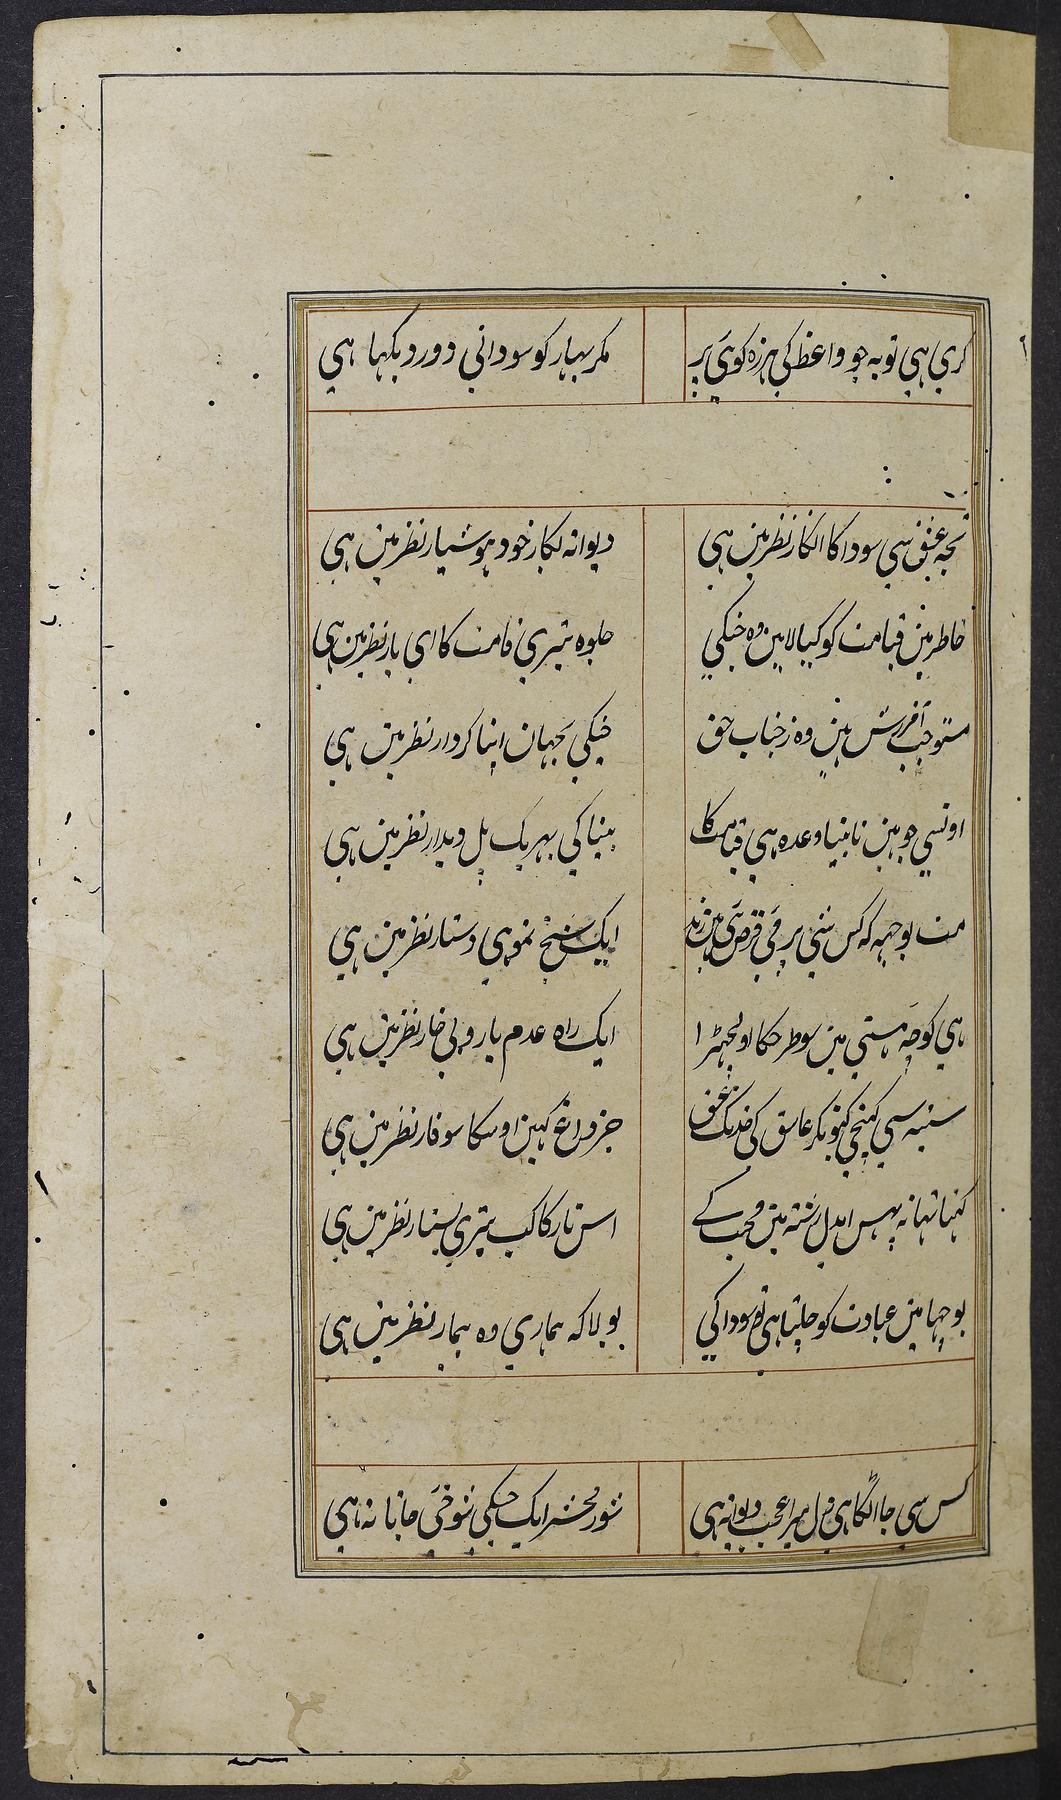 کری ہی توبہ جو واعظ کی ہرزہ کوئی پر
مکر بہار کو سودانی دور دیکہا ہی
تجہ عشق سی سودا کا انکار نظر مین ہی
دیوانہ بکار خود ہوشیار نظر مین ہی
خاطر مین قیامت کو کیا لاین وہ جنکی
جلوہ تیری قامت کا ای یار نظر مین ہی
مستوجب آمرزش ہین وہ ز جناب حق
جنکی بجہان اپنا کردار نظر مین ہی
اونسی جو ہین نابینا وعدہ ہی قیامت کا
بینا کی بہر یک پل دیدار نظر مین ہی
مت بوجہہ کہ کس شی پر قرض مین رند
ایک شیخ نمو ہی دستار نظر مین ہی
ہی کوچہ ہستی مین سو طرحکا اولجہیڑا
ایک راہ عدم یارو بی خار نظر مین ہی
سینہ سی کہنچی کیونکر عاشق کی خدنک عشق
جز داغ کہین اوسکا سوفار نظر مین ہی
کہنا نہانہ پہس ایدل رشتہ مین محبت کے
اس تار کا کب تیری بستار نظر مین ہی
بوجہا مین عیادت کو چلتا ہی تو سودا کی
بولا کہ ہماری وہ بیمار نظر مین ہی
کس سی جا اٹکا ہی دل میرا عجب دیوانہ ہی
شور محشر ایک جسکی شوخی جانانہ ہی